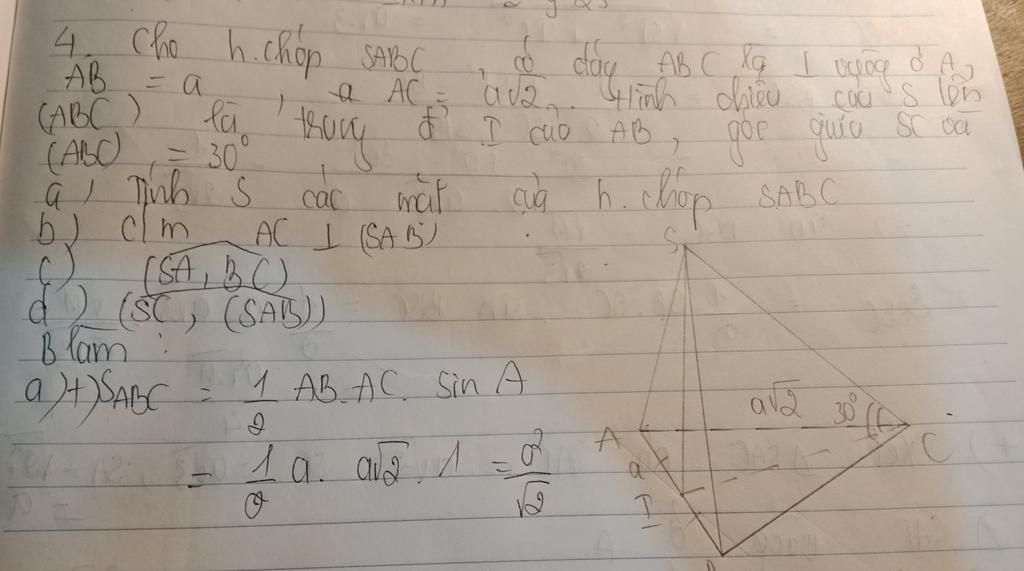 4. Cho h.chóp SABC, có đáy ABC là ⊥ vuông ở A,
AB = a, a AC = a√2. Hình chiếu của S lên
(ABC) là trung đ' I của AB, góc giữa SC và
(ABC), = 30°
a, Tính S các mặt của h.chóp SABC
b) c/m AC ⊥ (SAB)
c) (SA, BC)
d) (SC, (SAB))
B làm:
a) +) S_ABC = 1/2 AB.AC. sin A
= 1/2 a. a√2 . 1 = a²/√2
S
a√2
30°
A
C
a
I